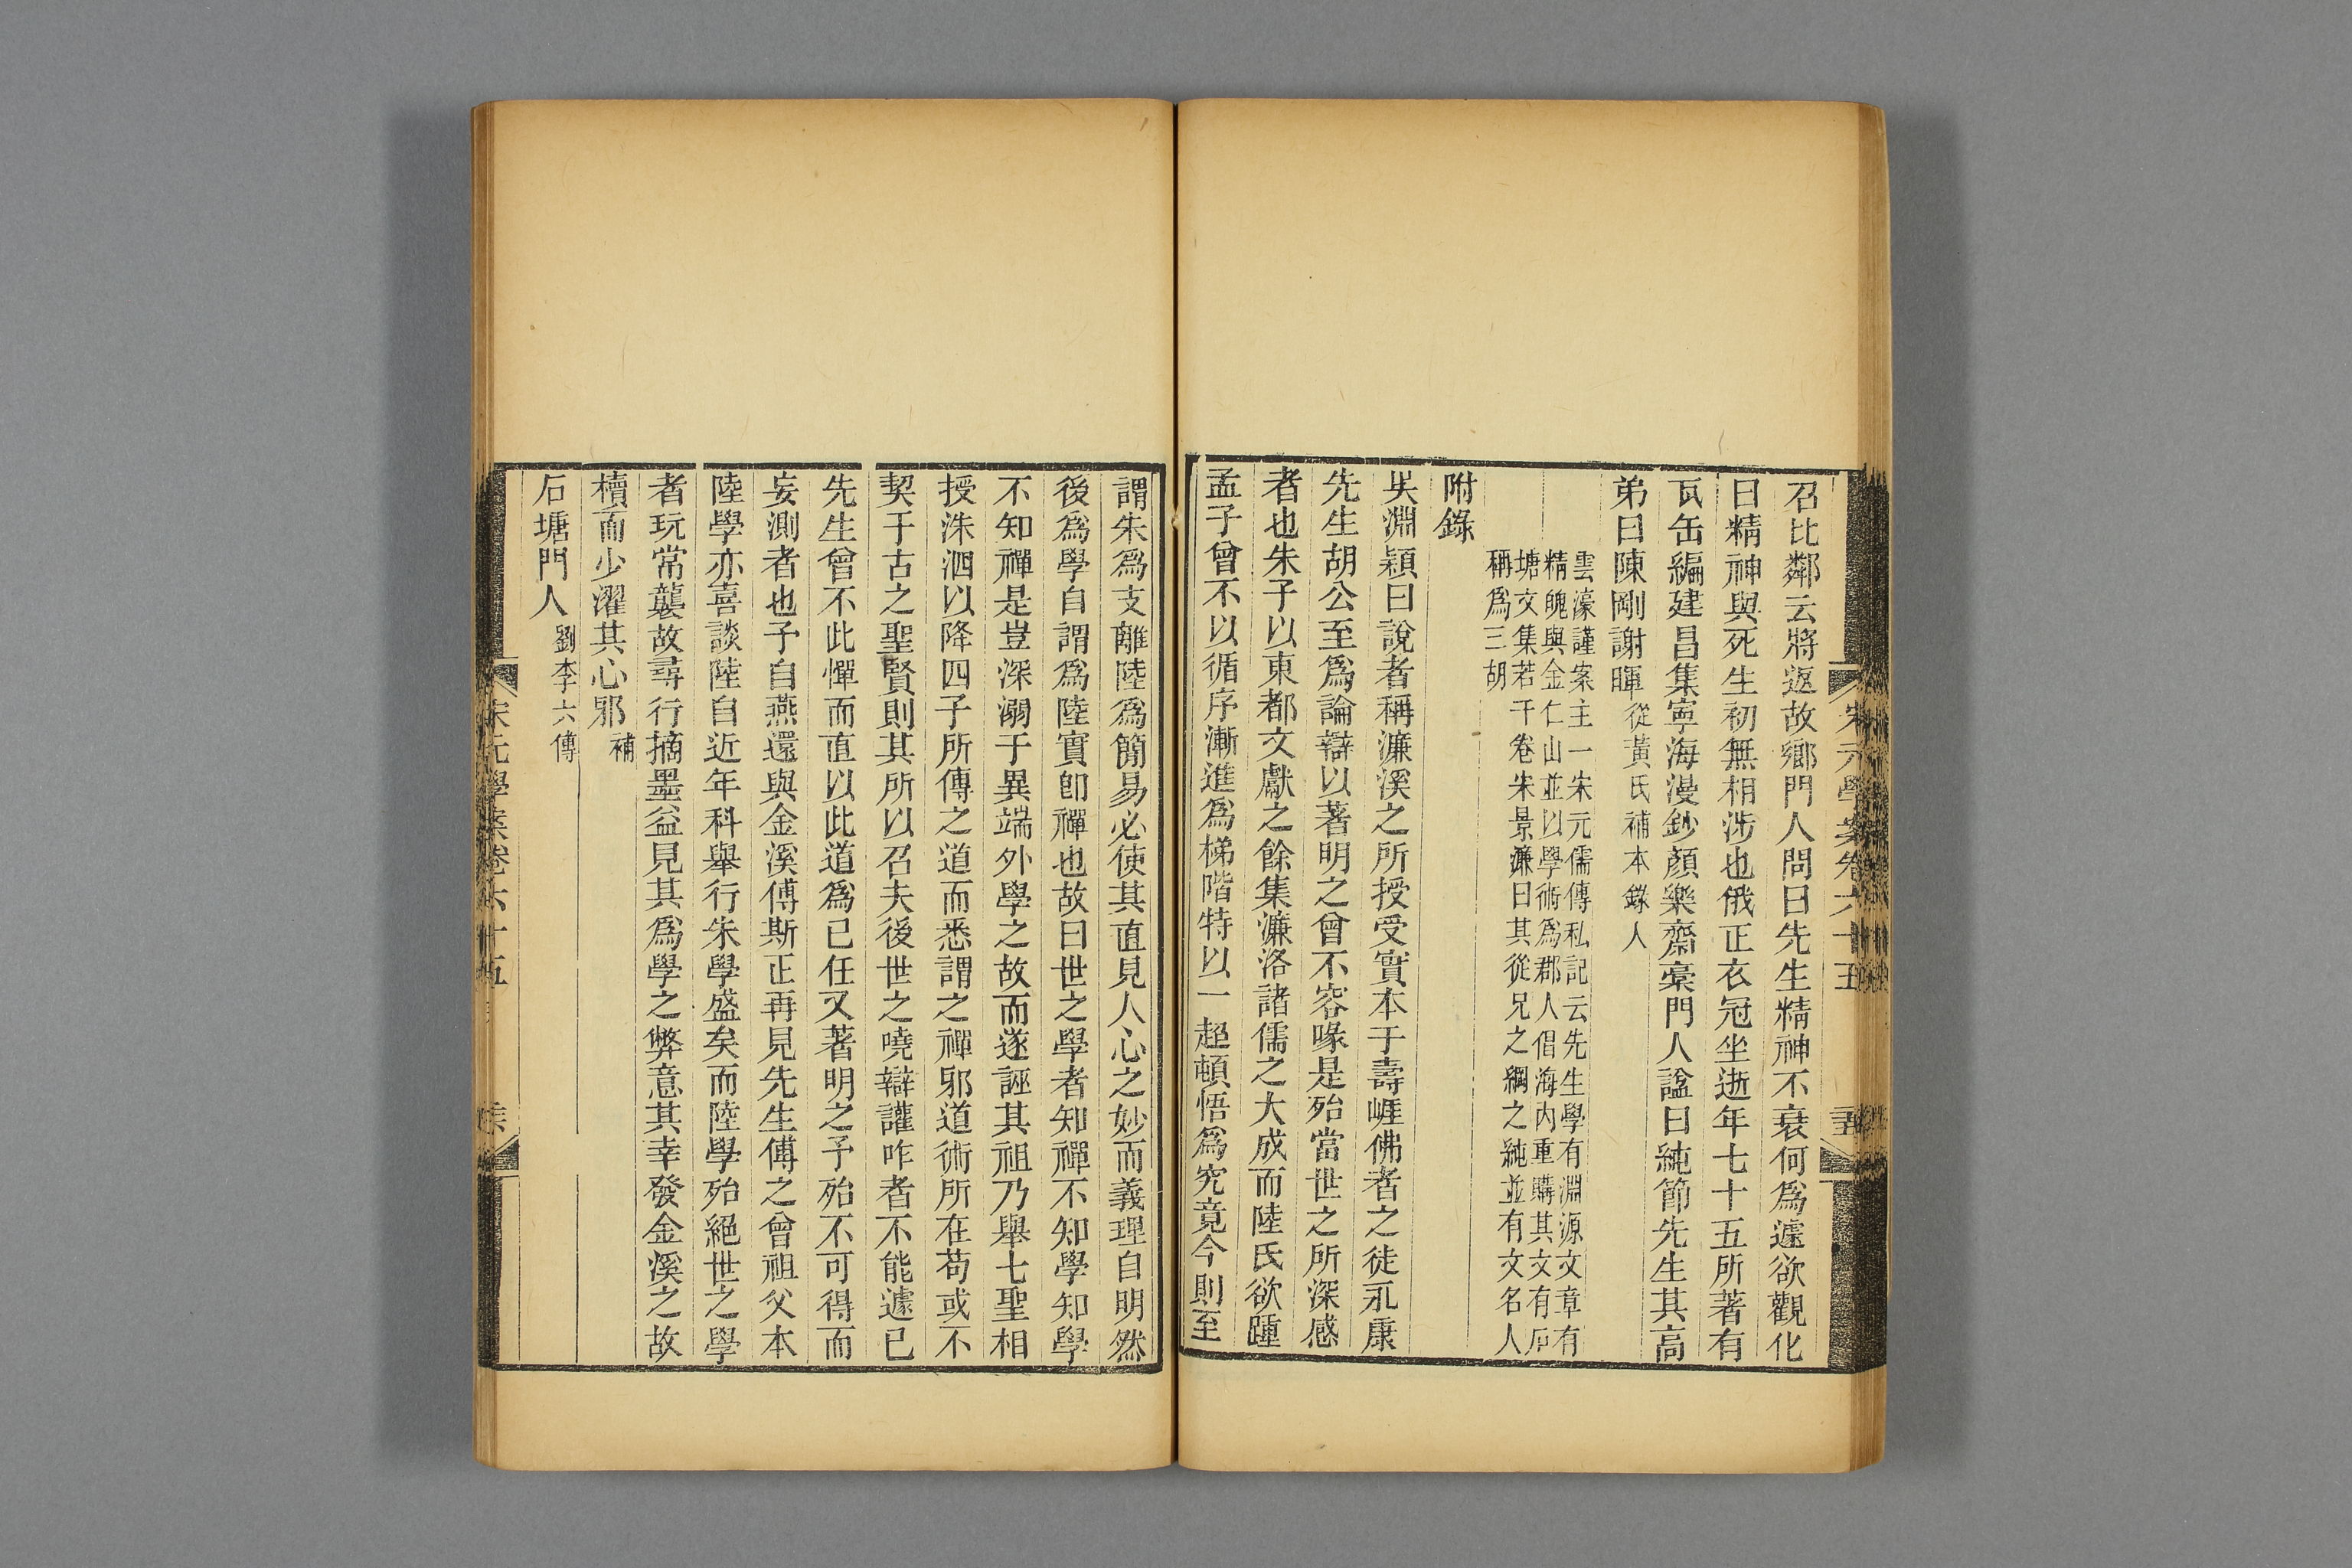 召比鄰云將返故鄉門人問曰先生精神不衰何爲遽欲觀化
曰精神與死生初無相涉也俄正衣冠坐逝年七十五所著有
瓦缶編建昌集寧海漫鈔顏樂齋稾門人諡曰純節先生其高
弟曰陳剛謝暉從黃氏補本錄人
雲濠謹案主一宋元儒傳私記云先生學有淵源文章有
精魄與金仁山並以學術爲郡人倡海內重購其文有石
塘文集若干卷朱景濂曰其從兄之綱之純並有文名人
稱爲三胡
附錄
吳淵穎曰說者稱濂溪之所授受實本于壽崕佛者之徒永康
先生胡公至爲論辯以著明之曾不容喙是殆當世之所深感
者也朱子以東都文獻之餘集濂洛諸儒之大成而陸氏欲踵
孟子曾不以循序漸進爲梯階特以一超頓悟爲究竟今則至
謂朱爲支離陸爲簡易必使其直見人心之妙而義理自明然
後爲學自謂爲陸實卽禪也故曰世之學者知禪不知學知學
不知禪是豈深溺于異端外學之故而遂誣其祖乃舉七聖相
授洙泗以降四子所傳之道而悉謂之禪邪道術所在苟或不
契于古之聖賢則其所以召夫後世之嘵辯讙咋者不能遽已
先生曾不此憚而直以此道爲己任又著明之予殆不可得而
妄測者也予自燕還與金溪傅斯正再見先生傅之曾祖父本
陸學亦喜談陸自近年科舉行朱學盛矣而陸學殆絕世之學
者玩常襲故尋行摘墨益見其爲學之弊意其幸發金溪之故
櫝而少濯其心邪補
石塘門人劉李六傳
宋元學案卷六十五